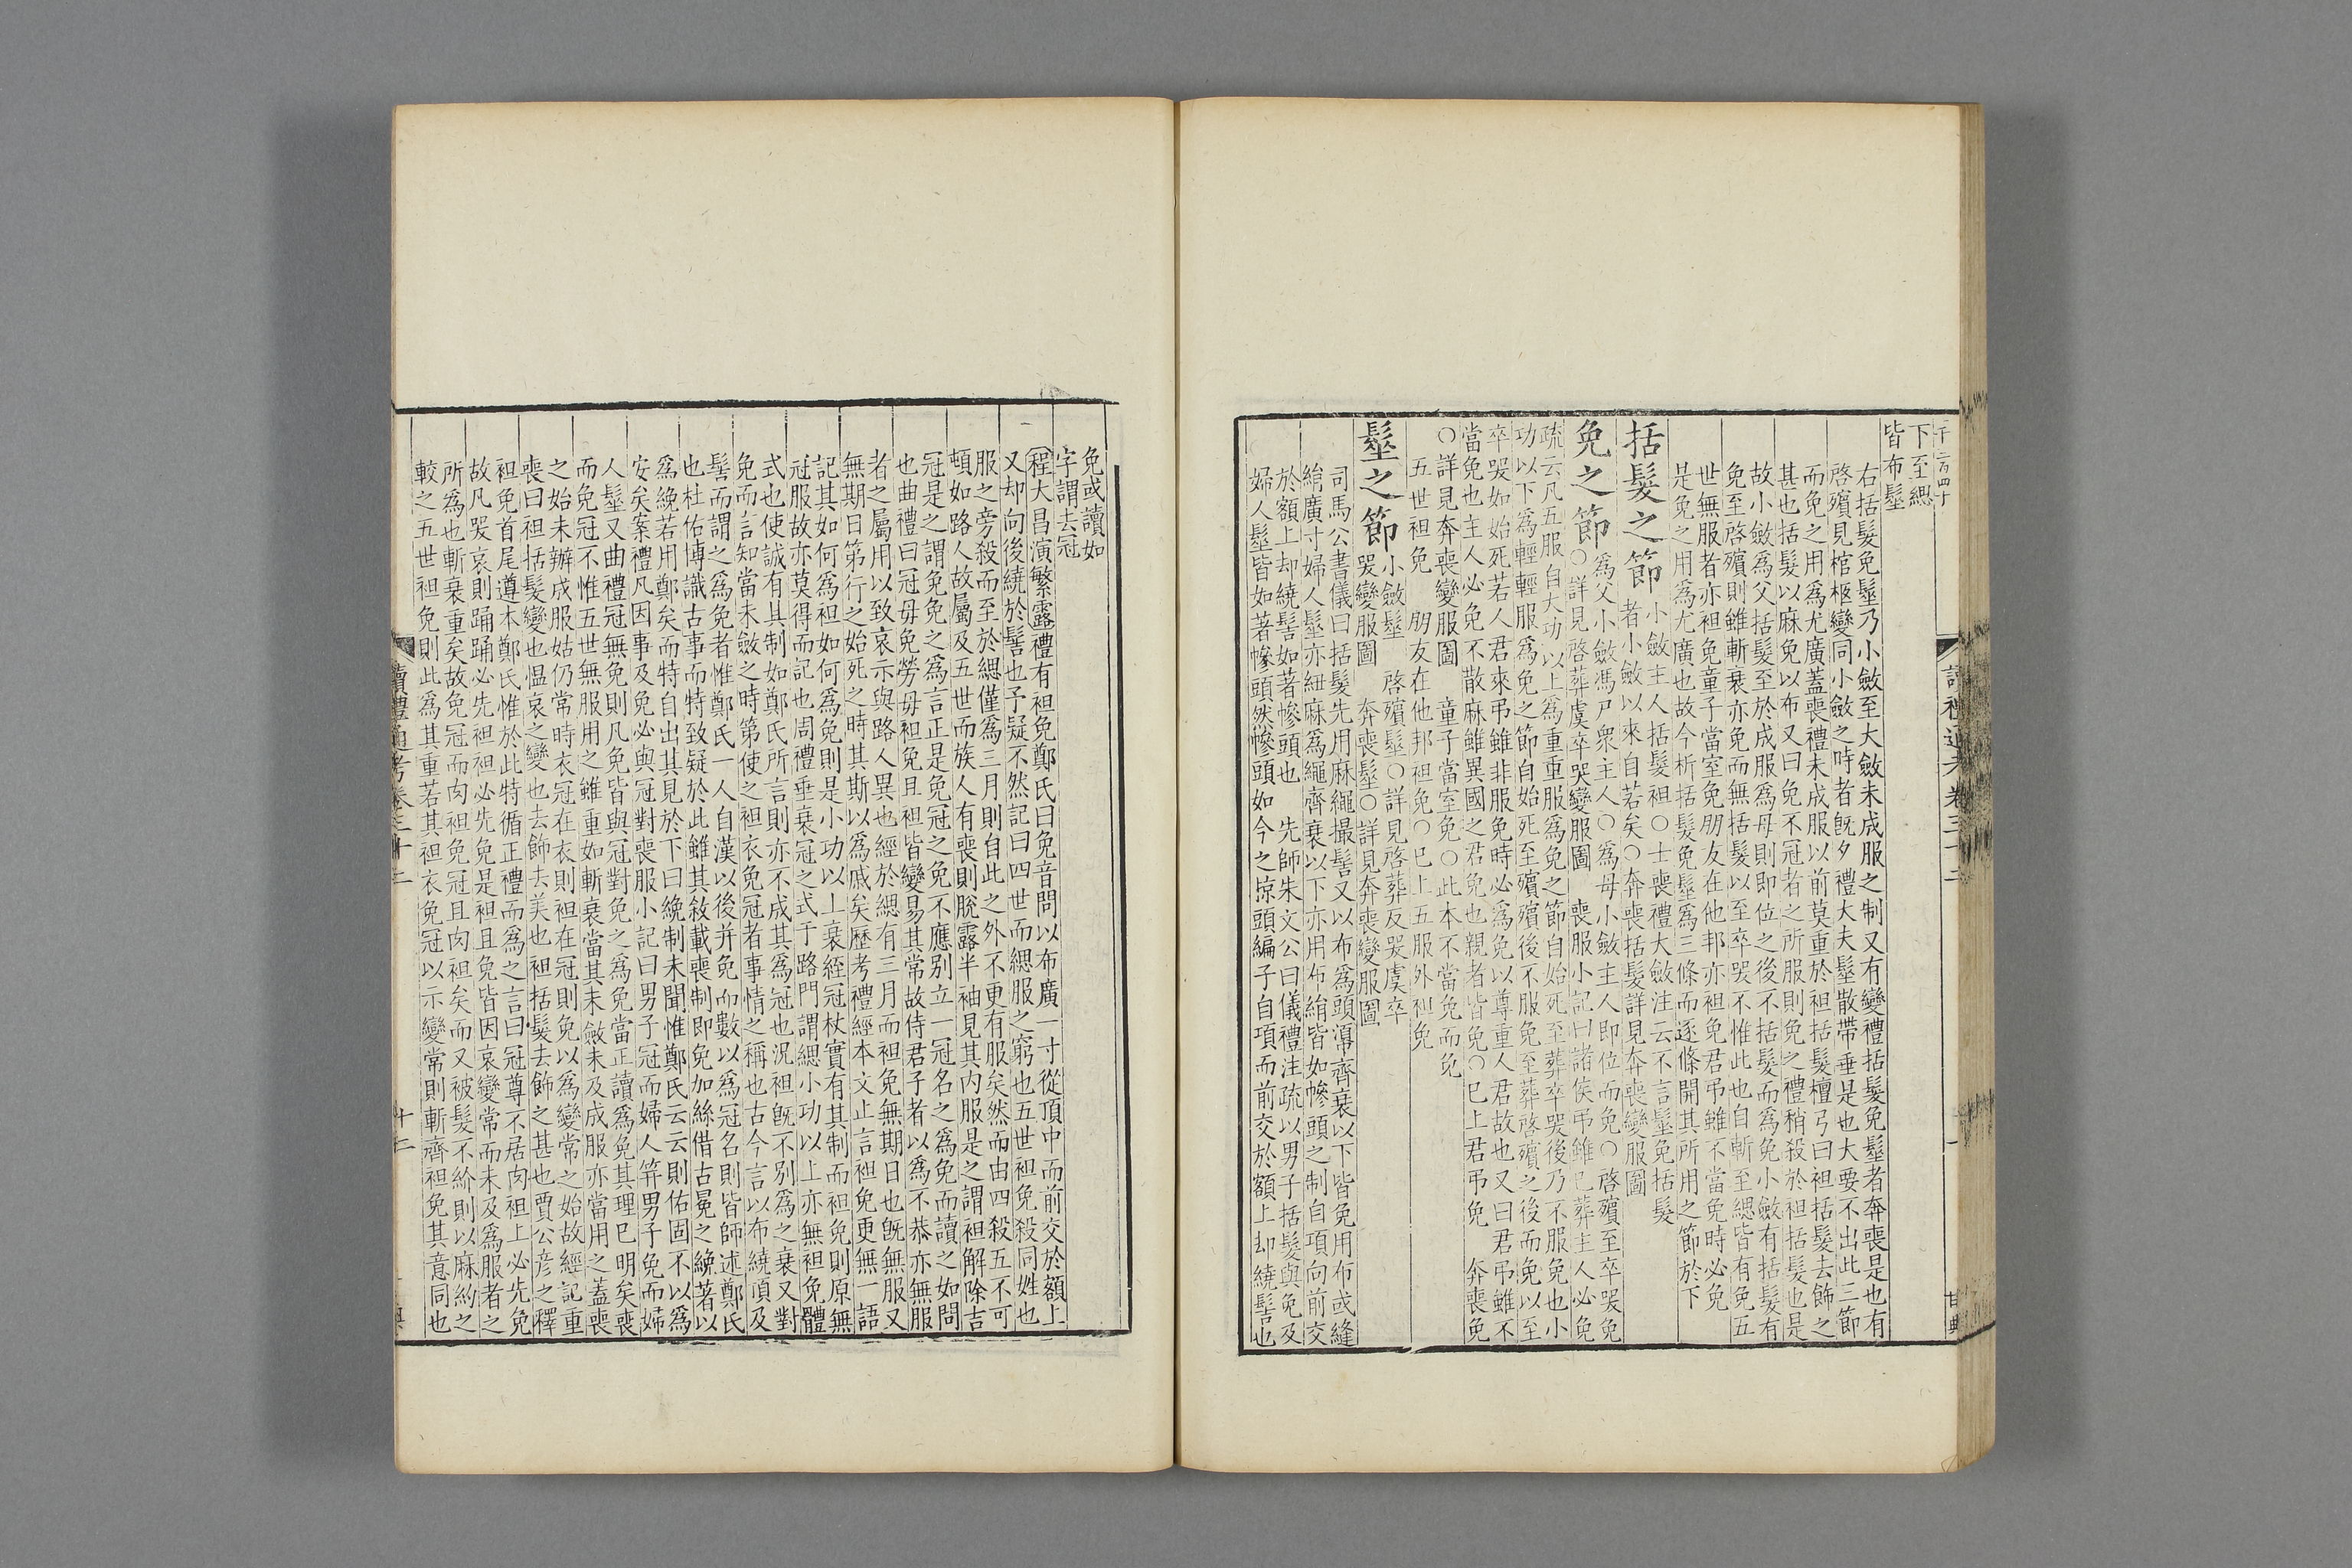 下至緦
皆布髽
右括髮免髽乃小斂至大斂未成服之制又有變禮括髮免髽者奔喪是也有
啓殯見棺柩變同小斂之時者旣夕禮大夫髽散帶垂是也大要不出此三節
而免之用爲尤廣蓋喪禮未成服以前莫重於袒括髮檀弓曰袒括髮去飾之
甚也括髮以麻免以布又曰免不冠者之所服則免之禮稍殺於袒括髮也是
故小斂爲父括髮至於成服爲母則即位之後不括髮而爲免小斂有括髮有
免至啓殯則雖斬衰亦免而無括髮以至卒哭不惟此也自斬至緦皆有免五
世無服者亦袒免童子當室免朋友在他邦亦袒免君弔雖不當免時必免
是免之用爲尤廣也故今析括髮免髽爲三條而逐條開其所用之節於下
括髮之節
小斂主人括髮袒○士喪禮大斂注云不言髽免括髮
者小斂以來自若矣○奔喪括髮詳見奔喪變服圖
免之節
爲父小斂馮尸眾主人○爲母小斂主人即位而免○啓殯至卒哭免
○詳見啓葬虞卒哭變服圖 喪服小記曰諸侯弔雖已葬主人必免
疏云凡五服自大功以上爲重重服爲免之節自始死至葬卒哭後乃不服免也小
功以下爲輕輕服爲免之節自始死至殯殯後不服免至葬啓殯之後而免以至
卒哭如始死若人君來弔雖非服免時必爲免以尊重人君故也又曰君弔雖不
當免也主人必免不散麻雖異國之君免也親者皆免○巳上君弔免 奔喪免
○詳見奔喪變服圖 童子當室免○此本不當免而免
五世袒免 朋友在他邦袒免○巳上五服外袒免
髽之節
小斂髽 啓殯髽○詳見啓葬反哭虞卒
哭變服圖 奔喪髽○詳見奔喪變服圖
司馬公書儀曰括髮先用麻繩撮髻又以布爲頭𢄼齊衰以下皆免用布或縫
絹廣寸婦人髽亦紐麻爲繩齊衰以下亦用布絹皆如幓頭之制自項向前交
於額上却繞髻如著幓頭也 先師朱文公曰儀禮注疏以男子括髮與免及
婦人髽皆如著幓頭然幓頭如今之掠頭編子自項而前交於額上却繞髻也
免或讀如
字謂去冠
程大昌演繁露禮有袒免鄭氏曰免音問以布廣一寸從頂中而前交於額上
又却向後繞於髻也予疑不然記曰四世而緦服之窮也五世袒免殺同姓也
服之旁殺而至於緦僅爲三月則自此之外不更有服矣然而由四殺五不可
頓如路人故屬及五世而族人有喪則脫露半袖見其內服是之謂袒解除吉
冠是之謂免免之爲言正是免冠之免不應别立一冠名之爲免而讀之如問
也曲禮曰冠毋免勞毋袒免且袒皆變易其常故侍君子者以爲不恭亦無服
者之屬用以致哀示與路人異也經於緦有三月而袒免無期日也旣無服又
無期日第行之始死之時其斯以爲戚矣歷考禮經本文止言袒免更無一語
記其如何爲袒如何爲免則是小功以上衰絰冠杖實有其制而袒免則原無
冠服故亦莫得而記也周禮垂衰冠之式于路門謂緦小功以上亦無袒免體
式也使誠有具制如鄭氏所言則亦不成其爲冠也況袒旣不別爲之衰又對
免而言知當未斂之時第使之袒衣免冠者事情之稱也古今言以布繞頂及
髻而謂之爲免者惟鄭氏一人自漢以後并免而數以爲冠名則皆師述鄭氏
也杜佑博識古事而特致疑於此雖其敘載喪制即免加絲借古冕之絻著以
爲絻若用鄭矣而特自出其見於下曰絻制未聞惟鄭氏云云則佑固不以爲
安矣案禮凡因事及免必與冠對喪服小記曰男子冠而婦人笄男子免而婦
人髽又曲禮冠無免則凡免皆與冠對免之爲免當正讀爲免其理巳明矣喪
而免冠不惟五世無服用之雖重如斬衰當其未斂未及成服亦當用之蓋喪
之始未辦成服姑仍常時衣冠在衣則袒在冠則免以爲變常之始故經記重
喪曰袒括髮變也慍哀之變也去飾去美也袒括髮去飾之甚也賈公彥之釋
袒免首尾遵本鄭氏惟於此特循正禮而爲之言曰冠尊不居肉袒上必先免
故凡哭哀則踊踊必先袒袒必先免是袒且免皆因哀變常而未及爲服者之
所爲也斬衰重矣故免冠而肉袒免冠且肉袒矣而又被髮不紒則以麻約之
較之五世袒免則此爲其重若其袒衣免冠以示變常則斬齊袒免其意同也
讀禮通考卷三十二
十二